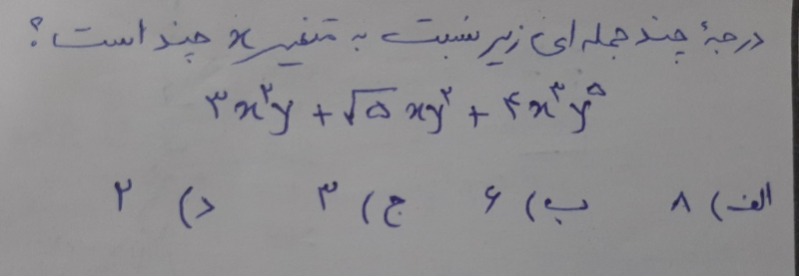 درجهٔ چند جمله ای زیر نسبت به متغیر x چند است؟
۳x²y + √۵ xy² + ۴x³y⁵
الف) ۸   ب) ۶   ج) ۳   د) ۲